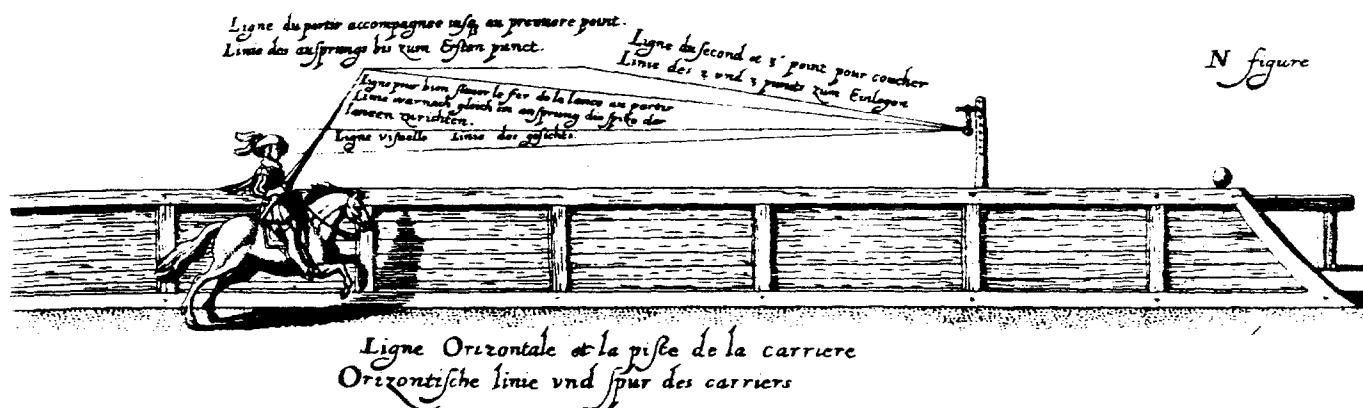 Ligne du partir accompagnee iusq; au premiere point.
Linie des ansprungs bis zum Ersten punct.
Ligne du second et 3e point pour coucher
Linie des 2 vnd 3 puncts zum Einlegen
N figure
Ligne pour bien situer le fer de la lance au partir
Linie warnach gleich im ansprung die spitz der
lancen zurichten.
Ligne visuelle Linie des gesichts.
Ligne Orizontale et la piste de la carriere
Orizontische linie vnd spur des carriers